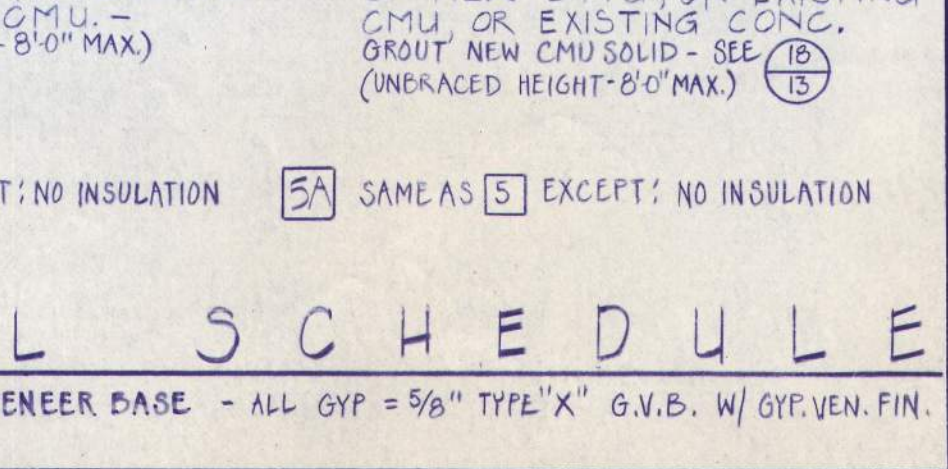 CMU. –
8'-0" MAX.)
CMU, OR EXISTING CONC.
GROUT NEW CMU SOLID - SEE 18
(UNBRACED HEIGHT-8'-0" MAX.) 13
T: NO INSULATION
5A SAME AS 5 EXCEPT: NO INSULATION
L SCHEDULE
ENEER BASE - ALL GYP = 5/8" TYPE "X" G.V.B. W/ GYP. VEN. FIN.